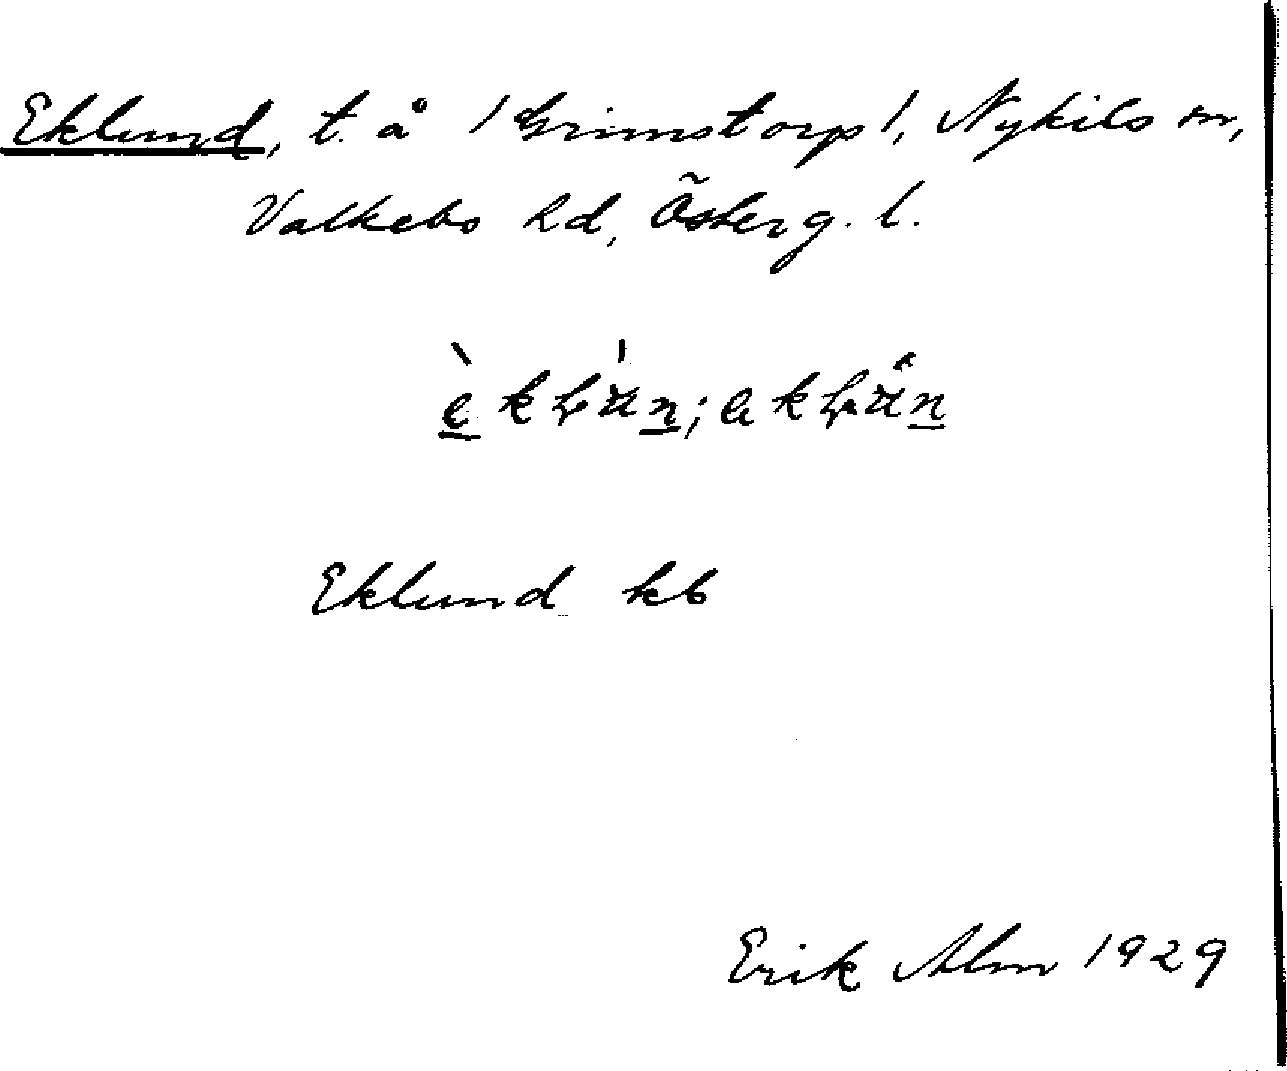 Eklund, t. å /Grimstorp/, Nykils sn,
Valkebo hd, Österg. l.
Eklund kb
Erik Alm 1929